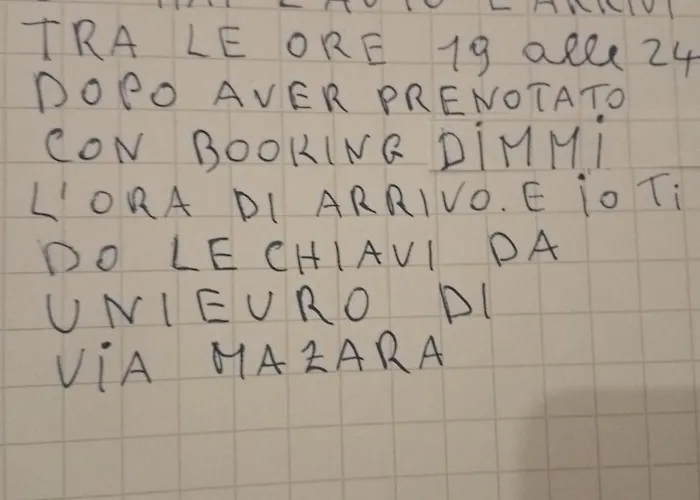 HAI L'AUTO L'ARRIVI
TRA LE ORE 19 alle 24
DOPO AVER PRENOTATO
CON BOOKING DIMMI
L'ORA DI ARRIVO. E io Ti
DO LE CHIAVI DA
UNIEURO DI
VIA MAZARA